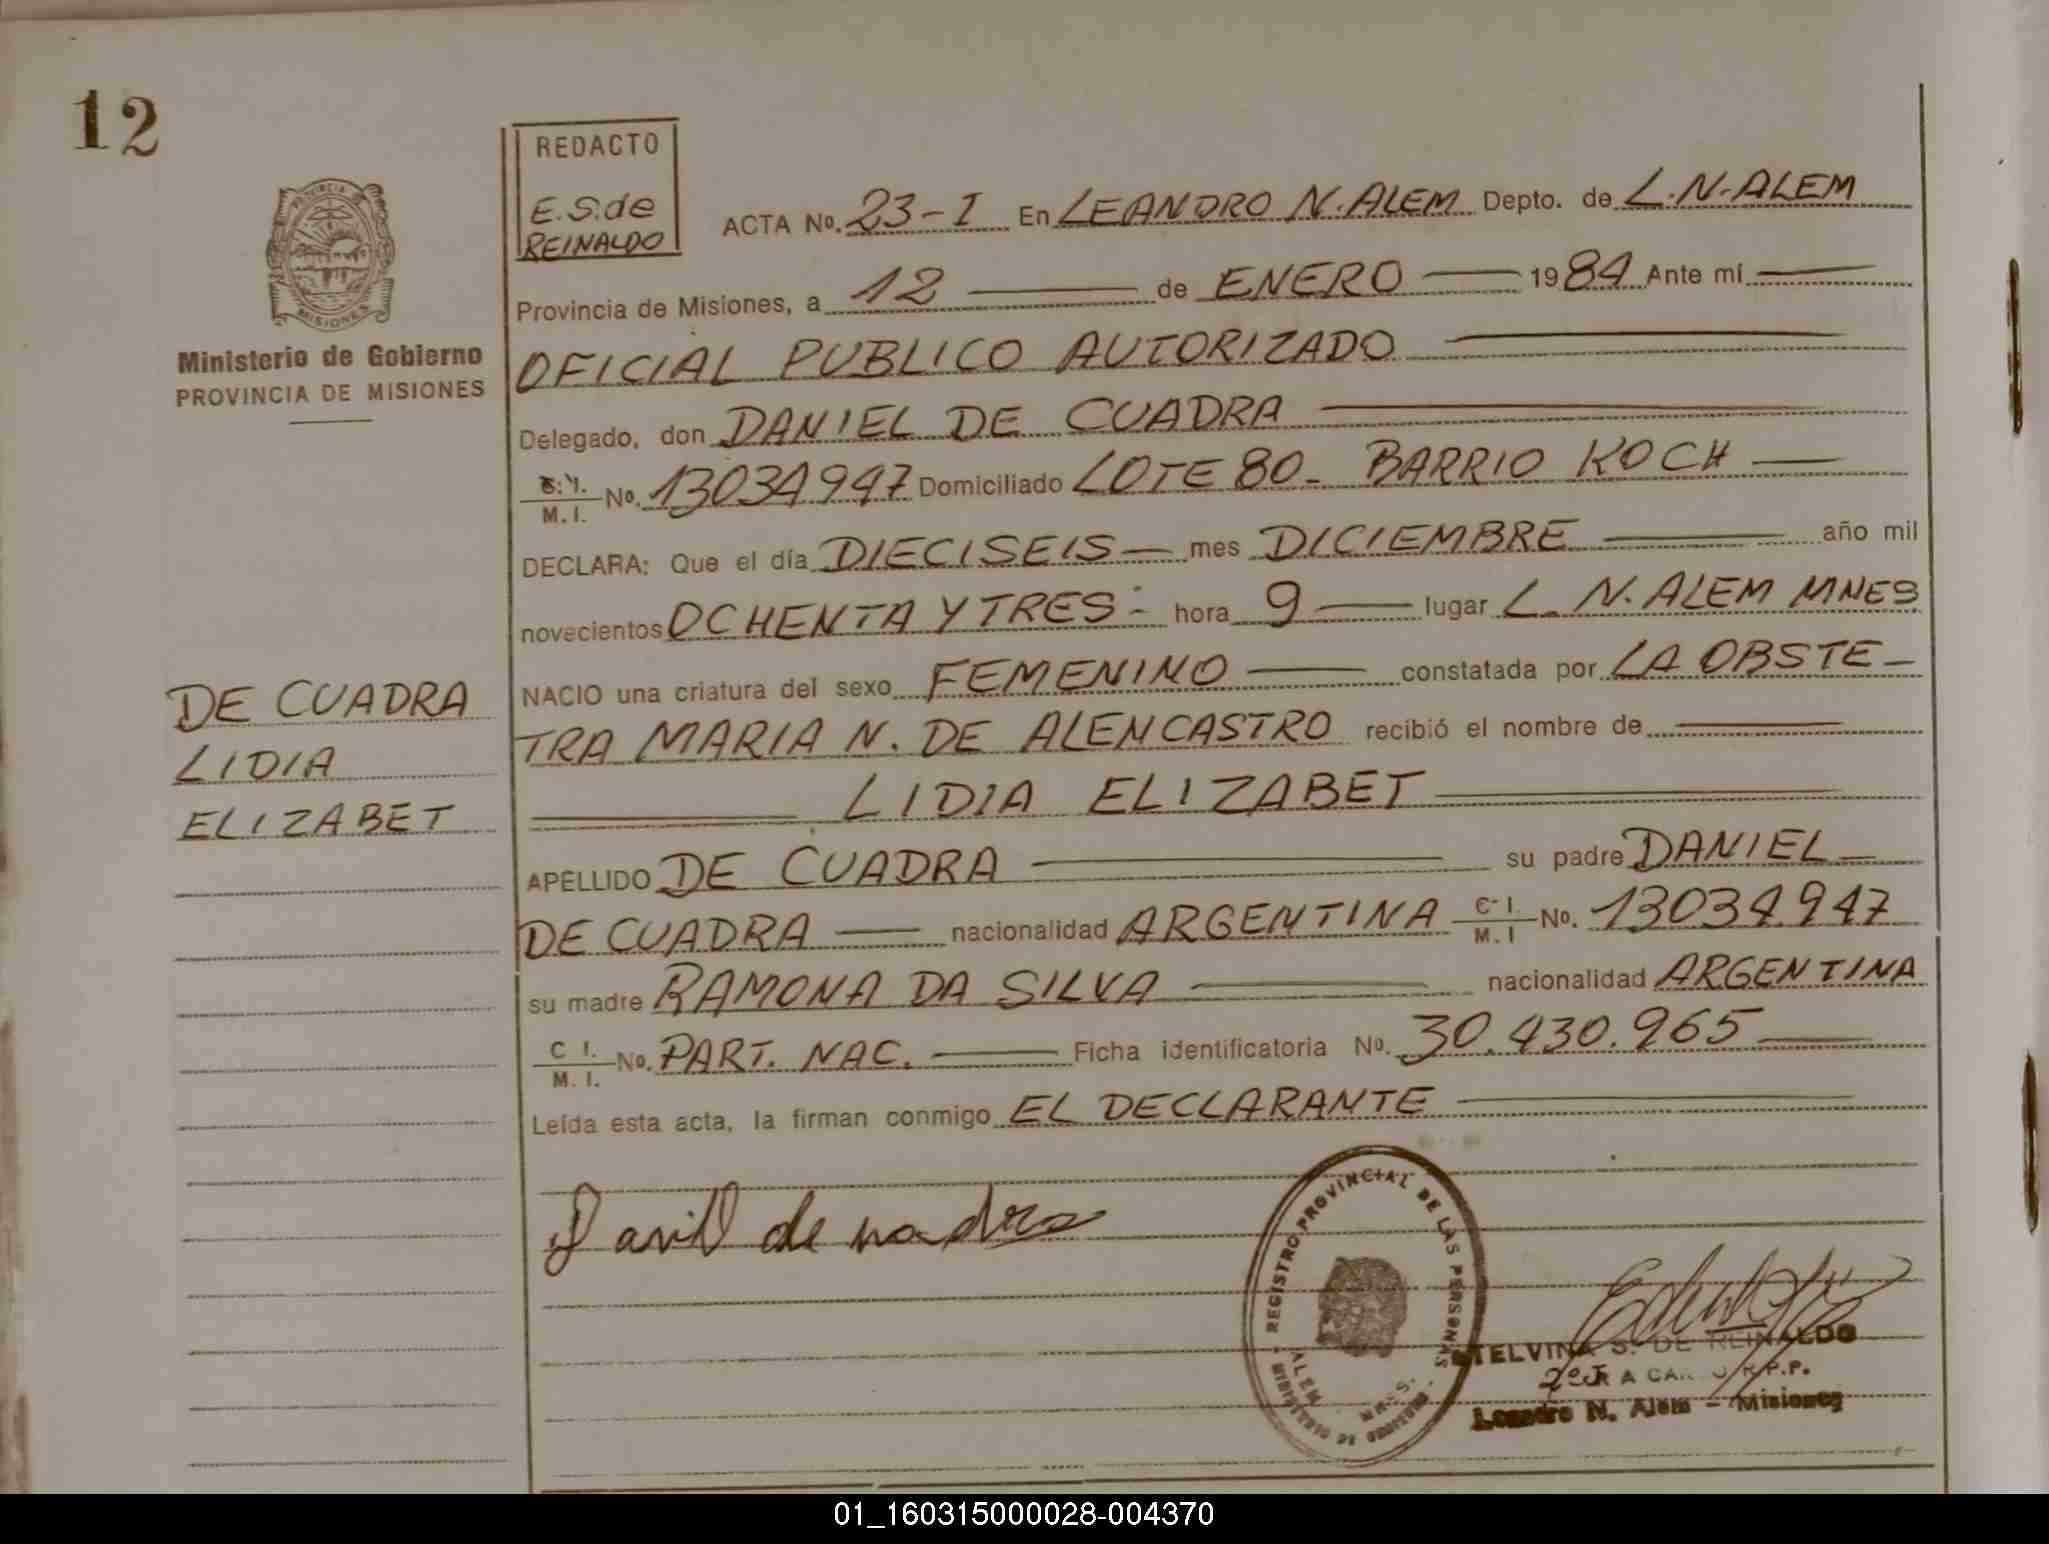 12
REDACTO
E.S.de
REINALDO
ACTA No. 23-I En LEANDRO N. ALEM Depto. de L.N-ALEM
Provincia de Misiones, a 12 de ENERO 1984 Ante mí
OFICIAL PUBLICO AUTORIZADO
Delegado, don DANIEL DE CUADRA
C.I. M.I. No. 13034947 Domiciliado LOTE 80- BARRIO KOCH
DECLARA: Que el día DIECISEIS mes DICIEMBRE año mil
novecientos OCHENTA Y TRES hora 9 lugar L. N. ALEM MNES
NACIO una criatura del sexo FEMENINO constatada por LA OBSTE-
TRA MARIA N. DE ALENCASTRO recibió el nombre de
LIDIA ELIZABET
APELLIDO DE CUADRA su padre DANIEL
DE CUADRA nacionalidad ARGENTINA C.I. M.I No. 13034.947
su madre RAMONA DA SILVA nacionalidad ARGENTINA
C I. M.I. No. PART. NAC. Ficha identificatoria No. 30.430.965
Leída esta acta, la firman conmigo EL DECLARANTE
PROVINCIA DE
MISIONES
Ministerio de Gobierno
PROVINCIA DE MISIONES
DE CUADRA
LIDIA
ELIZABET
REGISTRO PROVINCIAL DE LAS PERSONAS
ALEM
MNES.
MINISTERIO DE GOBIERNO
S. DE REINALDO
A R.P.P.
Leandro N. Alem - Misiones
01_160315000028-004370